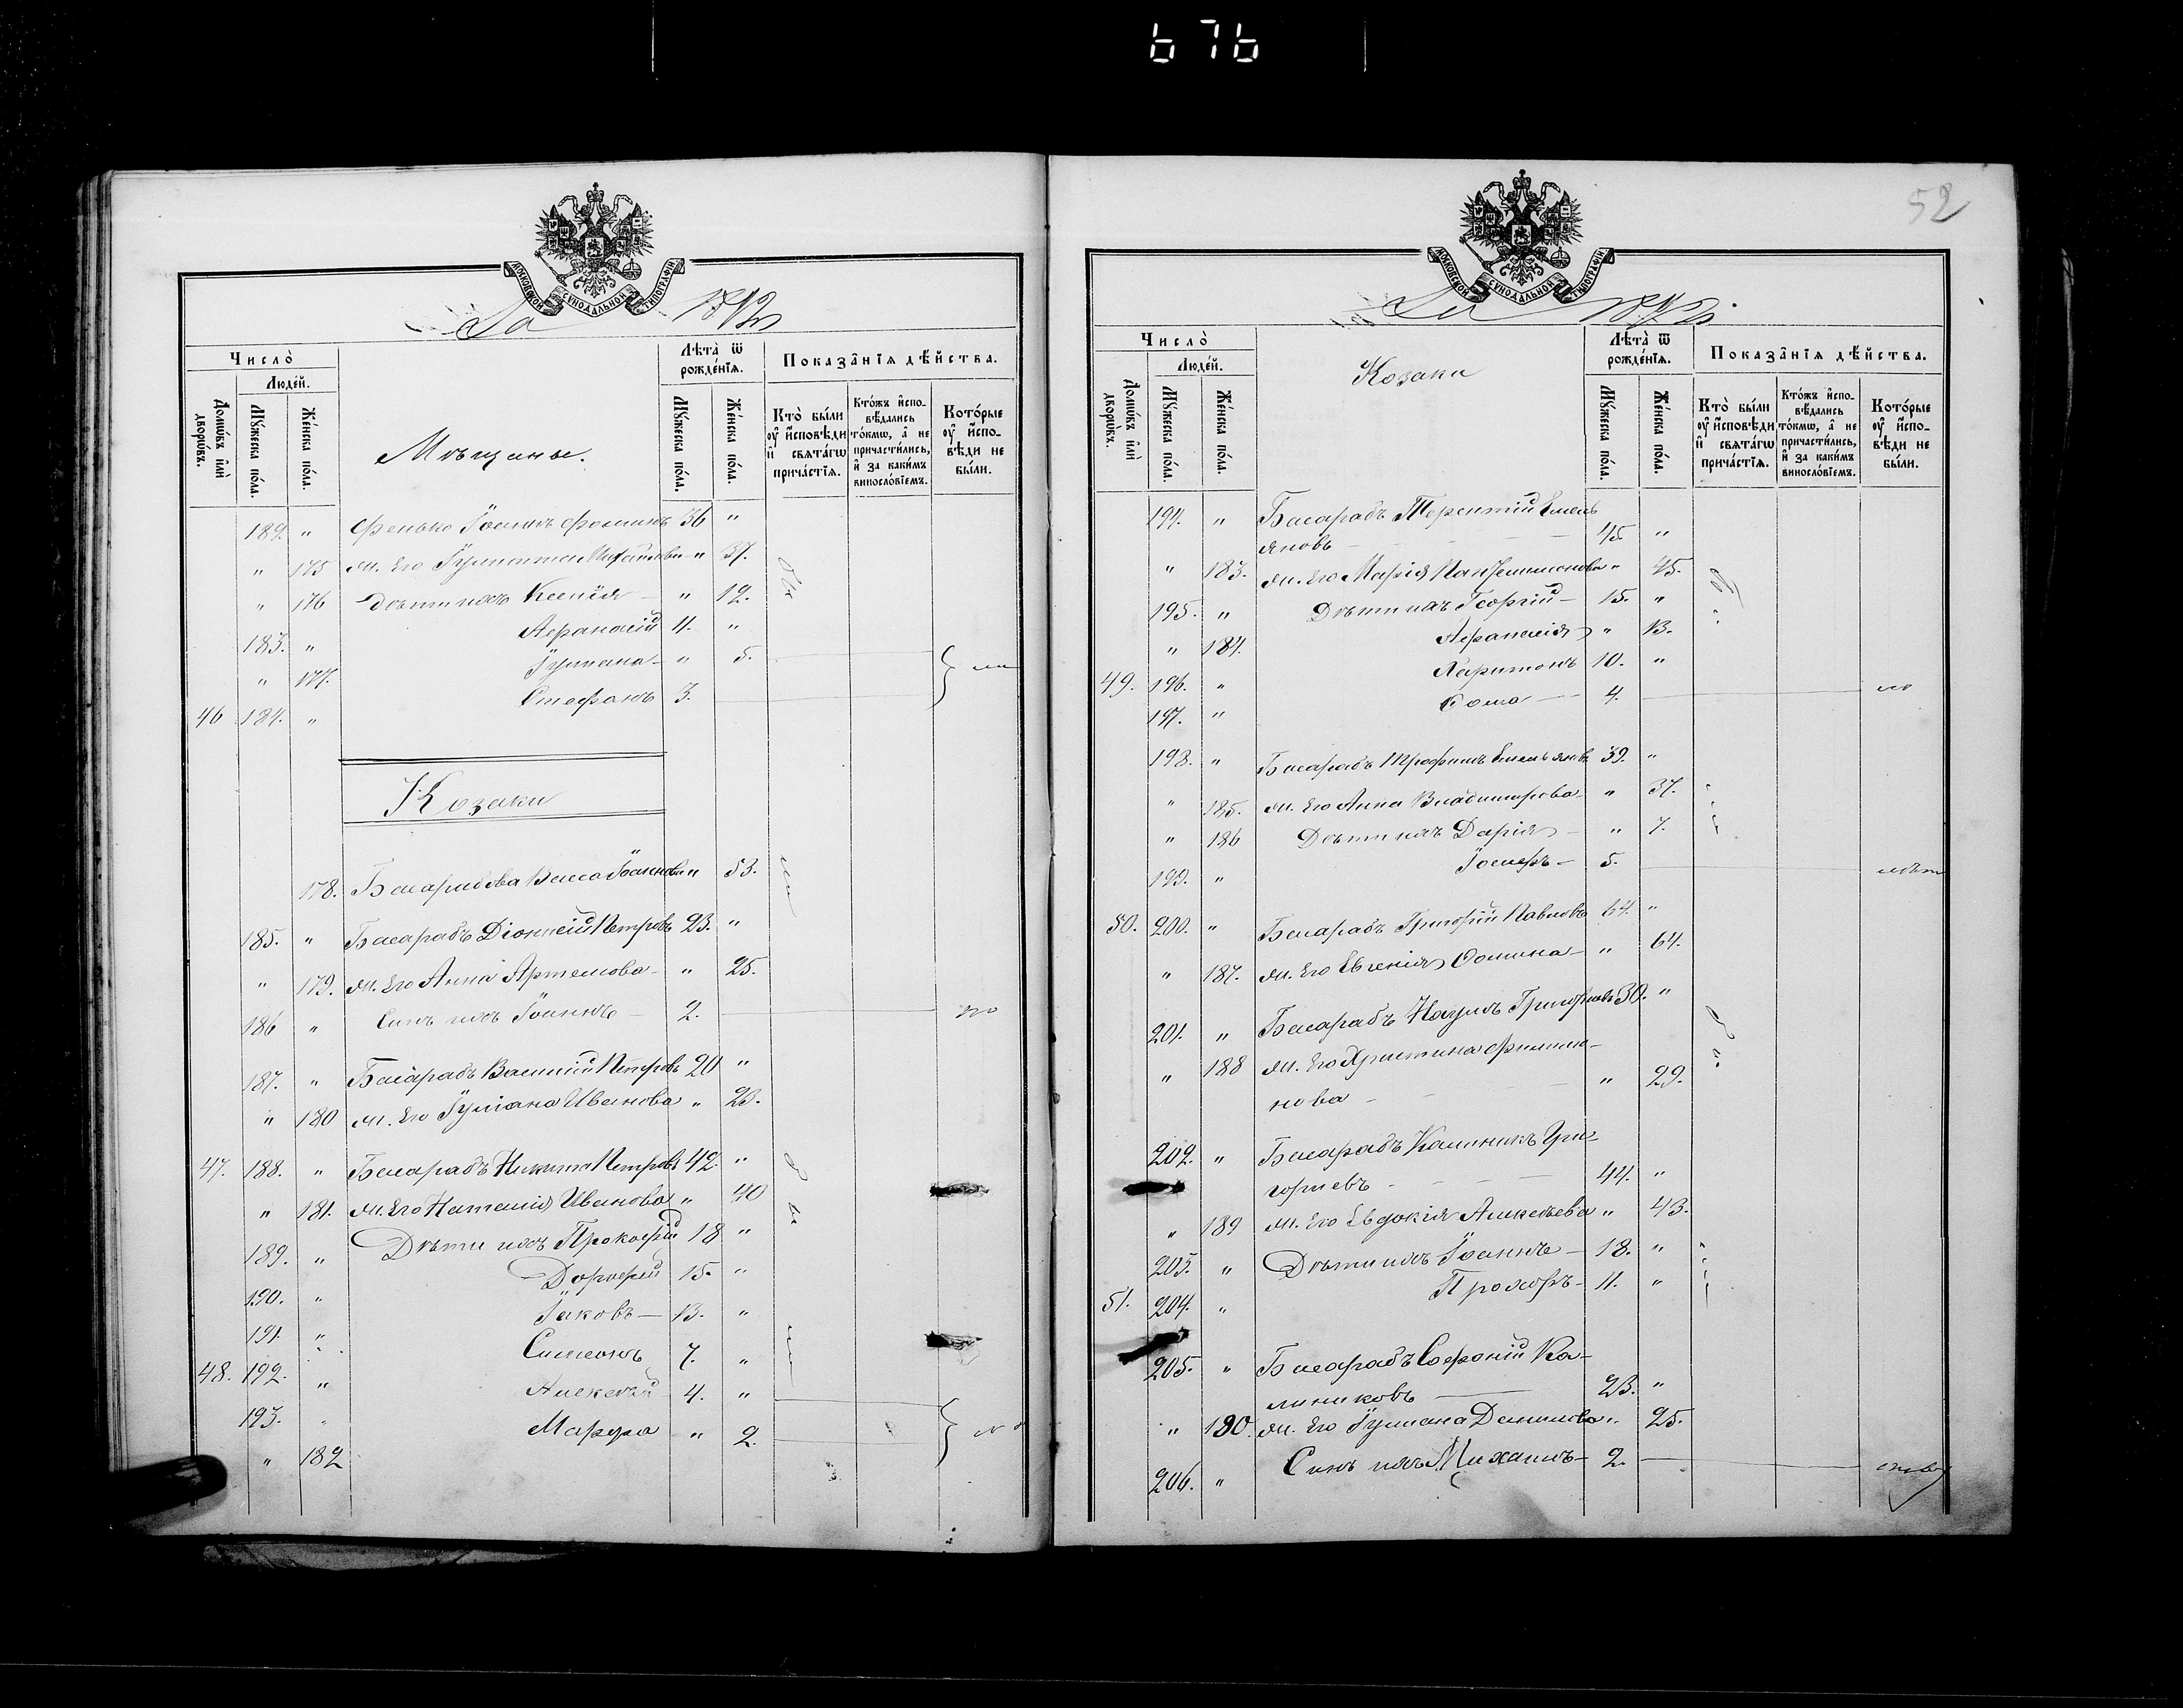 676
МОСКОВСКОЙ СѴНОДАЛЬНОЙ ТИПОГРАФІИ
За 1892
Число̀
Людéй.
Домѡ́въ и҆лѝ дворѡ́въ.
Мꙋ́жеска по́ла.
Же́нска по́ла.
Мѣщане.
Лѣта̀ ѿ рожде́нїѧ.
Мꙋ́жеска по́ла.
Же́нска по́ла.
Показа̑нїѧ дѣ́йства.
Кто̀ бы́ли ᲂу҆ и҆́сповѣди и҆ свѧта́гѡ прича́стїѧ.
Кто́жъ и҆спо- вѣ́дались то́кмѡ, а҆ не причасти́лись, и҆ за каки́мъ винословїемъ.
Кото́рые ᲂу҆ и҆́спо- вѣди не бы́ли.
182. " Фенько Іоаннъ Фоминъ 36 "
" 175 ж. Его Іулитта Михайлова " 37.
" 176 Дѣти ихъ Ксенія — " 12.
183. " Афанасій 11. "
" 177. Іуліана — " 5.
46 184. " Стефанъ 3.
Козаки
178. Басарабова Васса Іоаннова " 53.
185. " Басарабъ Діонисій Петровъ 23. "
" 179. ж. Его Анна Артемова — " 25.
186 " Сынъ ихъ Іоаннъ — 2.
187. " Басарабъ Василій Петровъ 20 "
" 180 ж. Его Іуліана Иванова " 23.
47. 188. " Басарабъ Никита Петровъ 42. "
" 181. ж. Его Наталія Иванова " 40
189. " Дѣти ихъ Прокофій 18 "
190. " Дорофей 15. "
191. " Іаковъ — 13. "
48. 192. " Симеонъ 7. "
193. " Алексѣй 4. "
" 182 Марфа " 2.
52
МОСКОВСКОЙ СѴНОДАЛЬНОЙ ТИПОГРАФІИ
За 1892
Число̀
Людéй.
Домѡ́въ и҆лѝ дворѡ́въ.
Мꙋ́жеска по́ла.
Же́нска по́ла.
Козаки
Лѣта̀ ѿ рожде́нїѧ.
Мꙋ́жеска по́ла.
Же́нска по́ла.
Показа̑нїѧ дѣ́йства.
Кто̀ бы́ли ᲂу҆ и҆́сповѣди и҆ свѧта́гѡ прича́стїѧ.
Кто́жъ и҆спо- вѣ́дались то́кмѡ, а҆ не причасти́лись, и҆ за каки́мъ винословїемъ.
Кото́рые ᲂу҆ и҆́спо- вѣди не бы́ли.
194. " Басарабъ Терентій Емель
яновъ — 45. "
" 183. ж. Его Марія Пантелимонова " 45.
195. " Дѣти ихъ Георгій — 15. "
" 184. Афанасія " 13.
49. 196. " Харитонъ 10. "
197. " Ѳома — 4.
198. " Басарабъ Трофимъ Емельяновъ 39. "
" 185. ж. Его Анна Владимирова — " 37.
" 186 Дѣти ихъ Дарія — " 7.
199. " Іосифъ — 5.
50. 200. " Басарабъ Григорій Павловъ 64. "
" 187. ж. Его Евгенія Ѳомина — " 64.
201. " Басарабъ Наумъ Григорьевъ 30. "
" 188 ж. Его Христина Филимо-
нова — " 29.
202. " Басарабъ Калиникъ Гри-
горіевъ — 44. "
" 189 ж. Его Евдокія Алексѣева " 43.
203. " Дѣти ихъ Іоаннъ — 18. "
51. 204. " Прохоръ — 11. "
205. " Басарабъ Софоній Ка-
линиковъ — 23. "
" 190. ж. Его Іуліана Данилова " 25.
206. " Сынъ ихъ Михаилъ — 2.